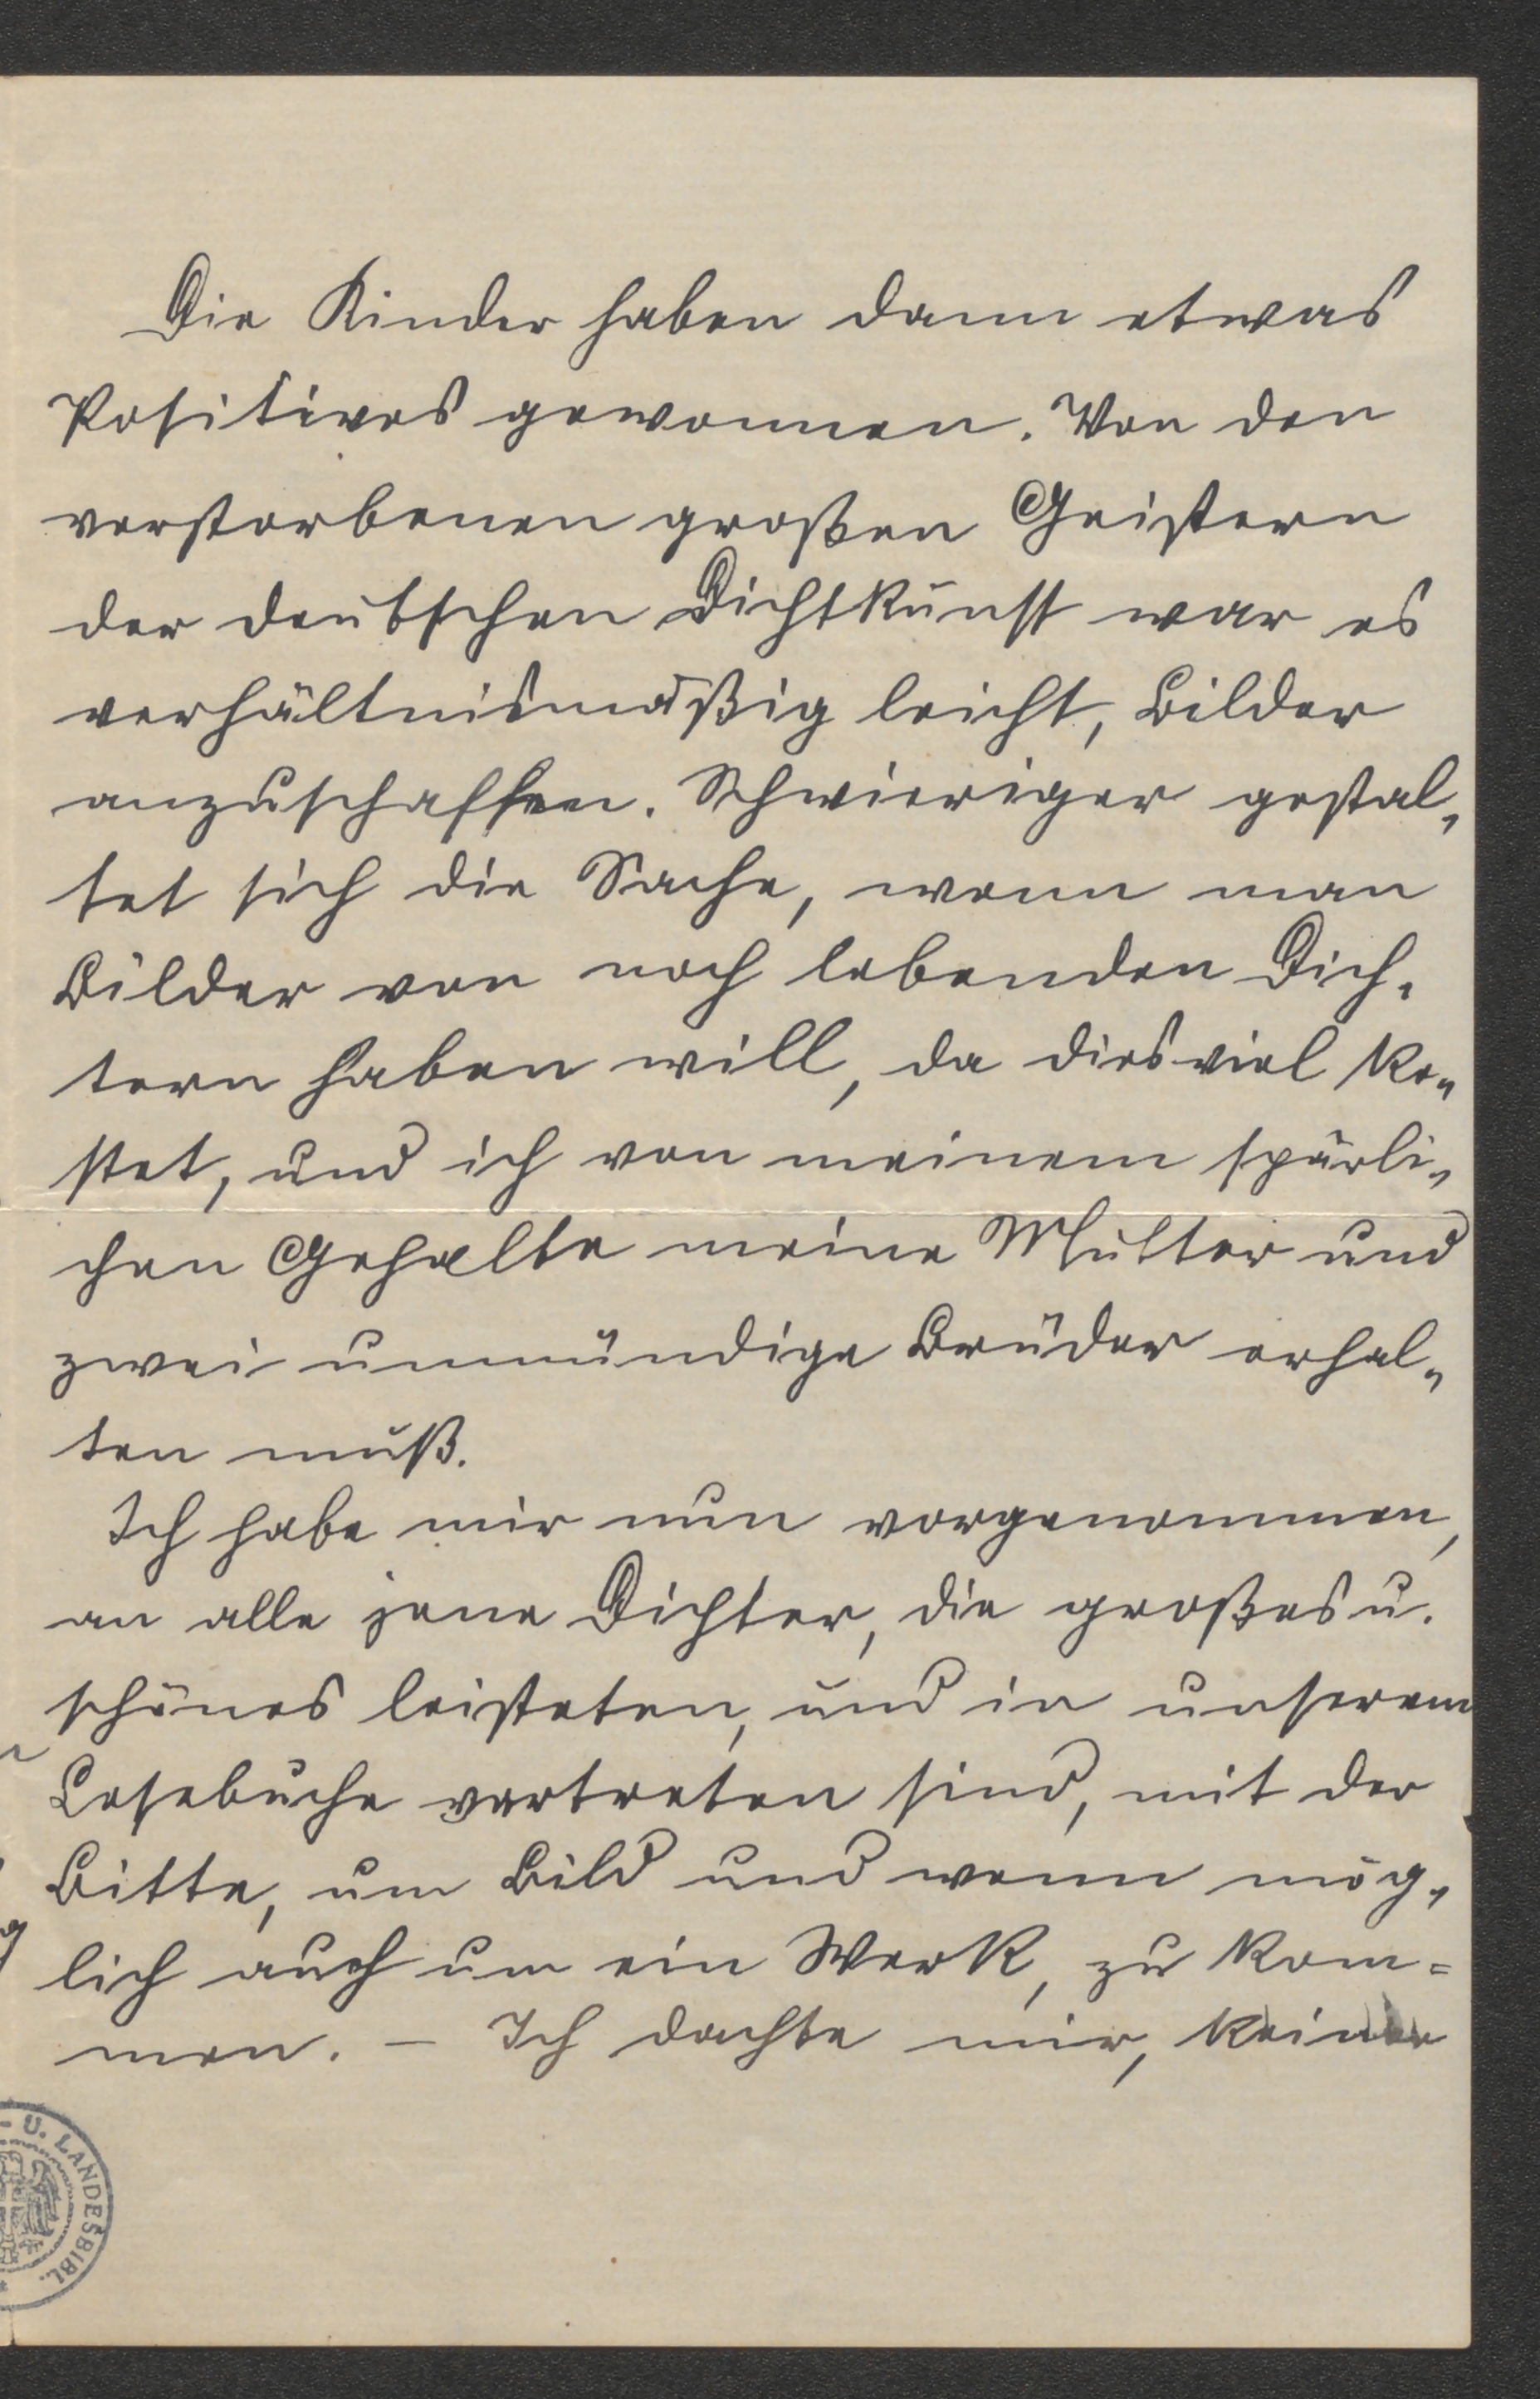 Die Kinder haben dann etwas
Positives gewonnen. Von den
verstorbenen großen Geistern
der deutschen Dichtkunst war es
verhältnismäßig leicht, Bilder
anzuschaffen. Schwieriger gestal„
tet sich die Sache, wenn man
Bilder von noch lebenden Dich„
tern haben will, da dies viel ko„
stet, und ich von meinem spärli„
chen Gehalte meine Mutter und
zwei unmündige Brüder erhal„
ten muß.
Ich habe mir nun vorgenommen,
an alle jene Dichter, die großes u.
schönes leisteten, und in unserem
Lesebuche vertreten sind, mit der
Bitte, um Bild und wenn mög„
lich auch um ein Werk, zu kom=
men. – Ich dachte mir, keiner
U. LANDESBIBL.